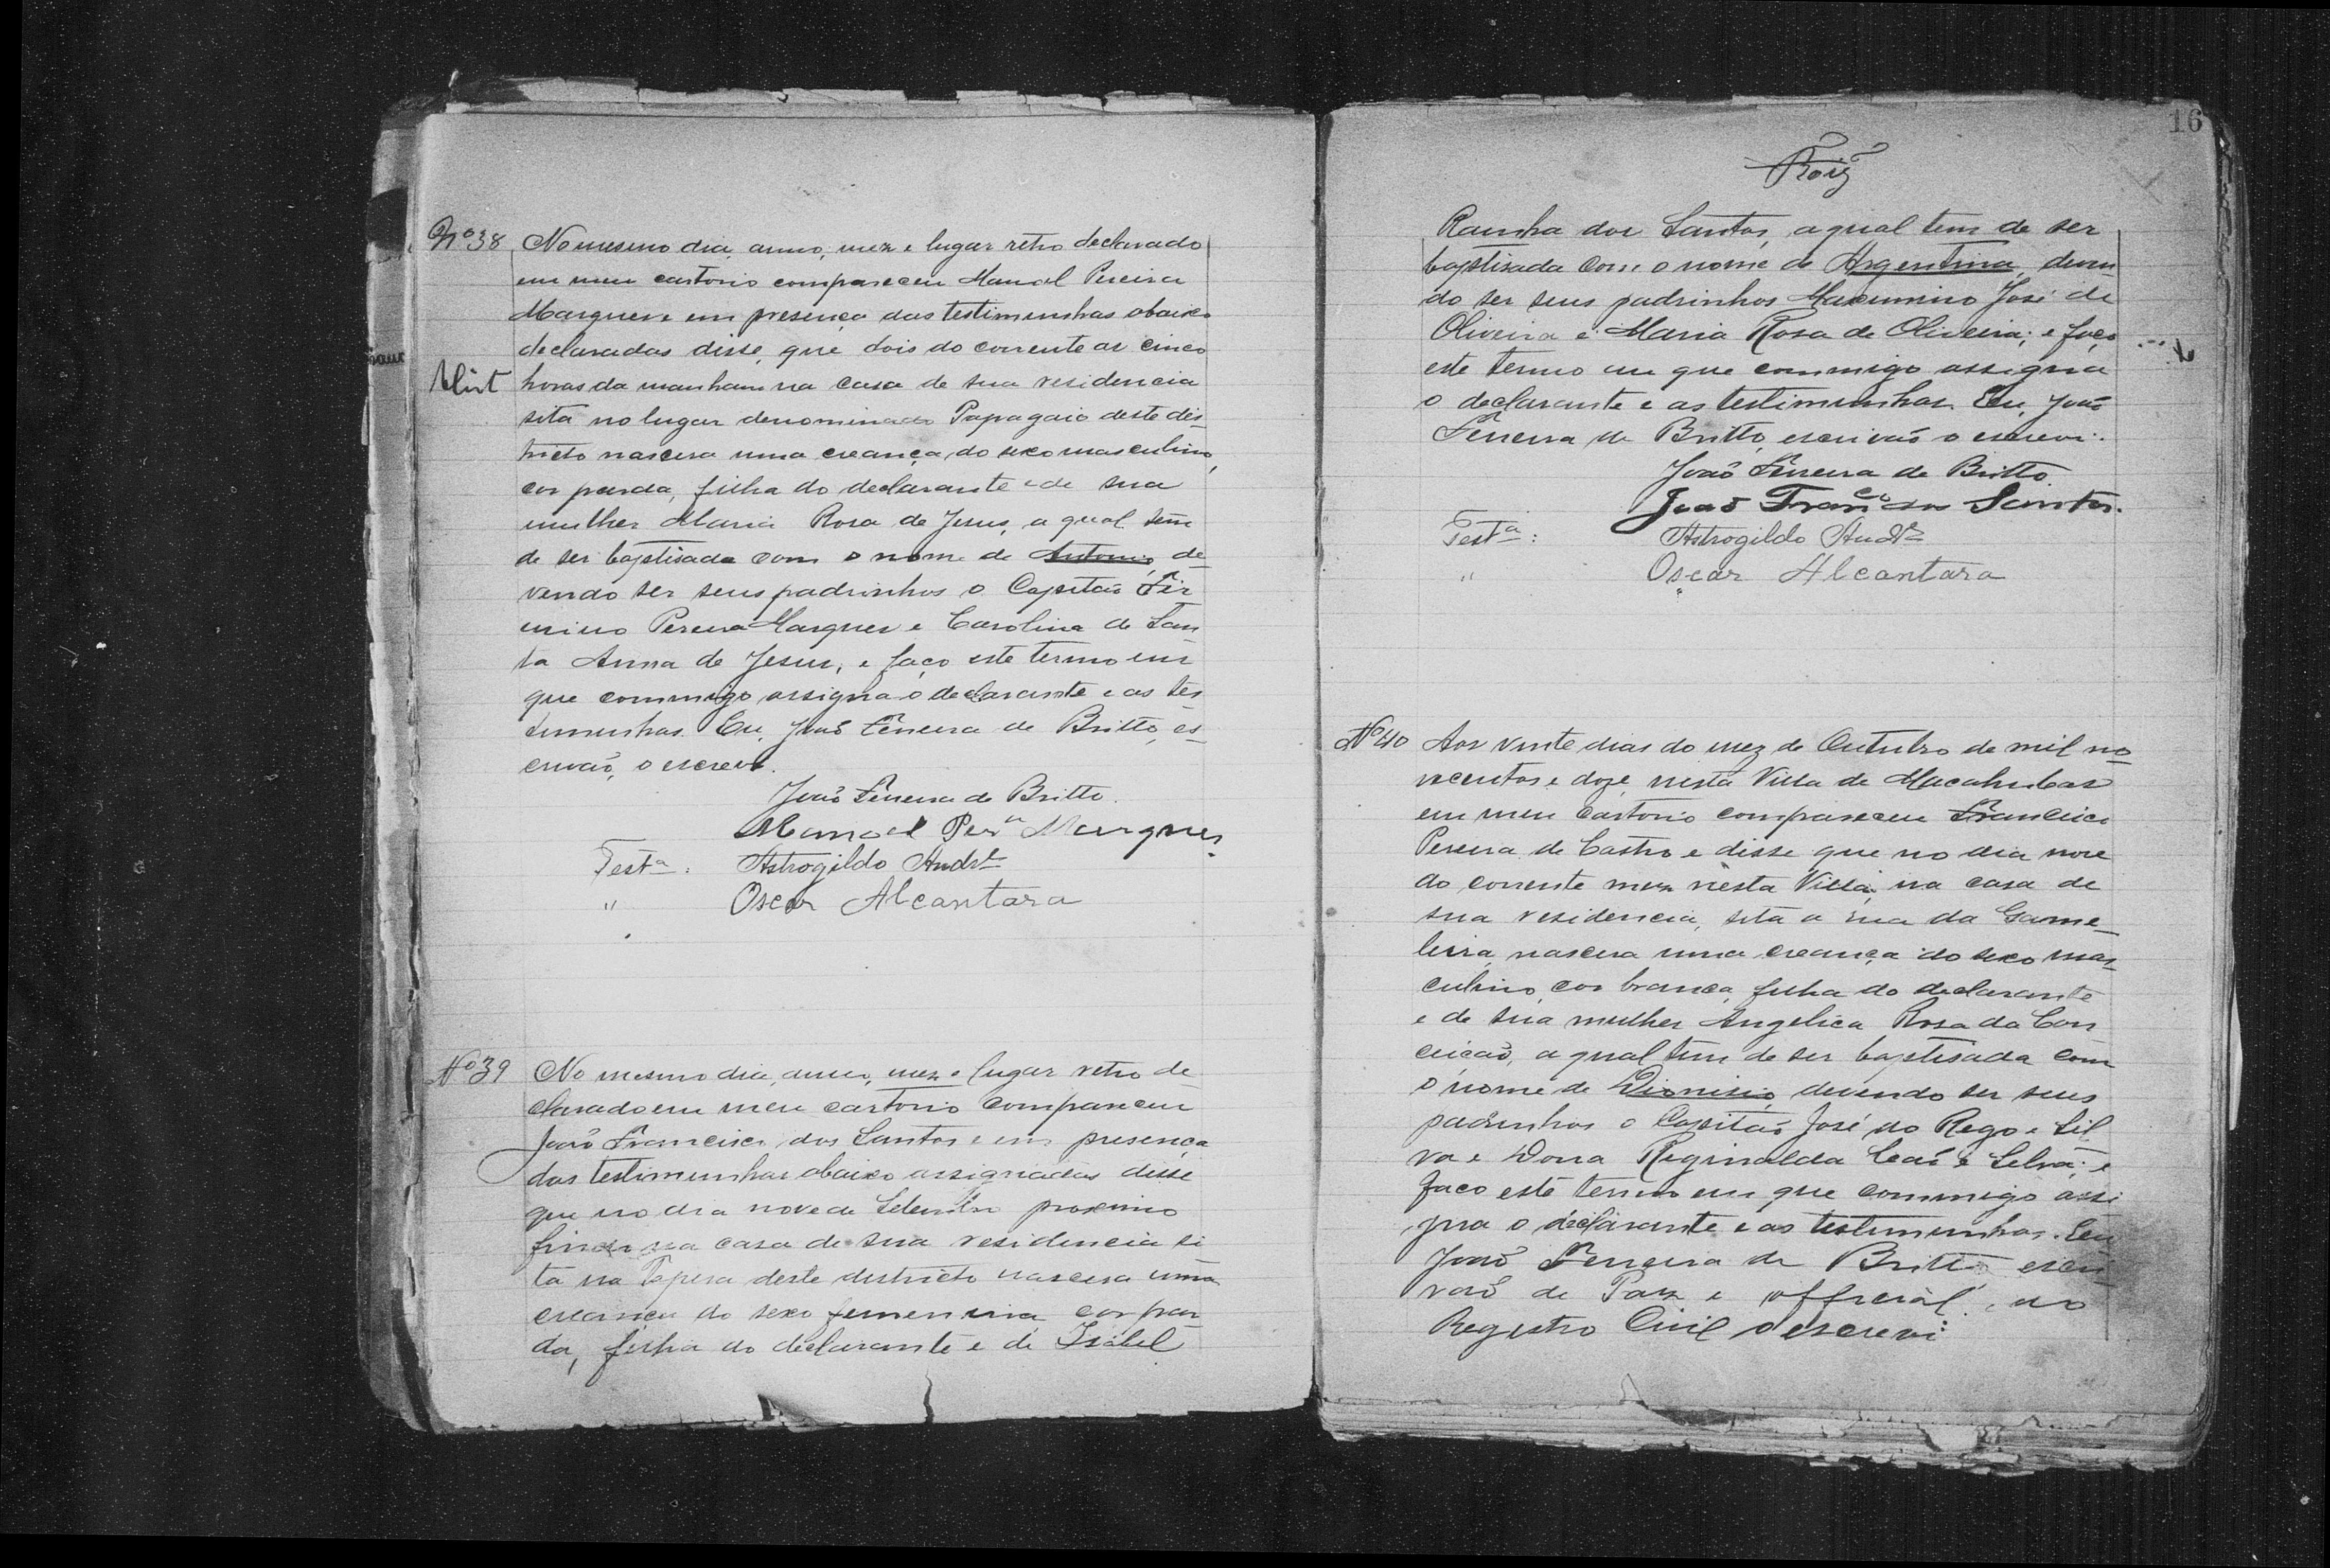 Nº 38 No mesmo dia, anno, mez e lugar retro declarado
em meu cartorio compareceu Manoel Pereira
Marques e em presença das testimunhas abaixo
declaradas disse, que dois do corrente as cinco
horas da manham na casa de sua residencia
sita no lugar denominado Papagaio deste dis-
tricto nascera uma creança do sexo masculino,
cor parda, filha do declarante e de sua
mulher Maria Rosa de Jesus, a qual tem
de ser baptisada com o nome de Antonio, de-
vendo ser seus padrinhos o Capitão Fir
mino Pereira Marques e Carolina de San
ta Anna de Jesus; e faço este termo em
que commigo assigna o declarante e as tes
timunhas. Eu, João Ferreira de Britto, es-
crivão, o escrevi.
João Ferreira de Britto.
Manoel Perª Marques.
Testª: Astrogildo Andr
" Oscar Alcantara
Nº 39 No mesmo dia, anno, mez e lugar retro de-
clarado em meu cartorio compareceu
João Francisco dos Santos e em presença
das testimunhas abaixo assignadas disse
que no dia nove de Setembro proximo
findo na casa de sua residencia si
ta na Tapera deste districto nascera uma
creança do sexo femenina cor par
da, filha do declarante e de Isabel
16
Rainha dos Santos, a qual tem de ser
baptisada com o nome de Argentina, deven-
do ser seus padrinhos Maximino José de
Oliveira e Maria Rosa de Oliveira; e faço
este termo em que commigo assigna
o declarante e as testimunhas. Eu, João
Ferreira de Britto, escrivão o escrevi.
João Ferreira de Britto.
João Franco dos Santos.
Testª: Astrogildo Andr
" Oscar Alcantara
Nº 40 Aos vinte dias do mez de Outubro de mil no-
vecentos e doze, nesta Villa de Macahubas
em meu cartorio compareceu Francisco
Pereira de Castro e disse que no dia nove
do corrente mez nesta Villa, na casa de
sua residencia, sita a rua da Game-
leira, nascera uma creança do sexo mas-
culino, cor branca, filha do declarante
e de sua mulher Angelica Rosa da Con
ceição, a qual tem de ser baptisada com
o nome de Dionisio, devendo ser seus
padrinhos o Capitão José do Rego e Sil
va e Dona Reginalda Leão e Silva; e
faco este termo em que commigo assi
gna o declarante e as testimunhas. Eu
João Ferreira de Britto escri-
vão de Paz e official do
Registro Civil o escrevi: